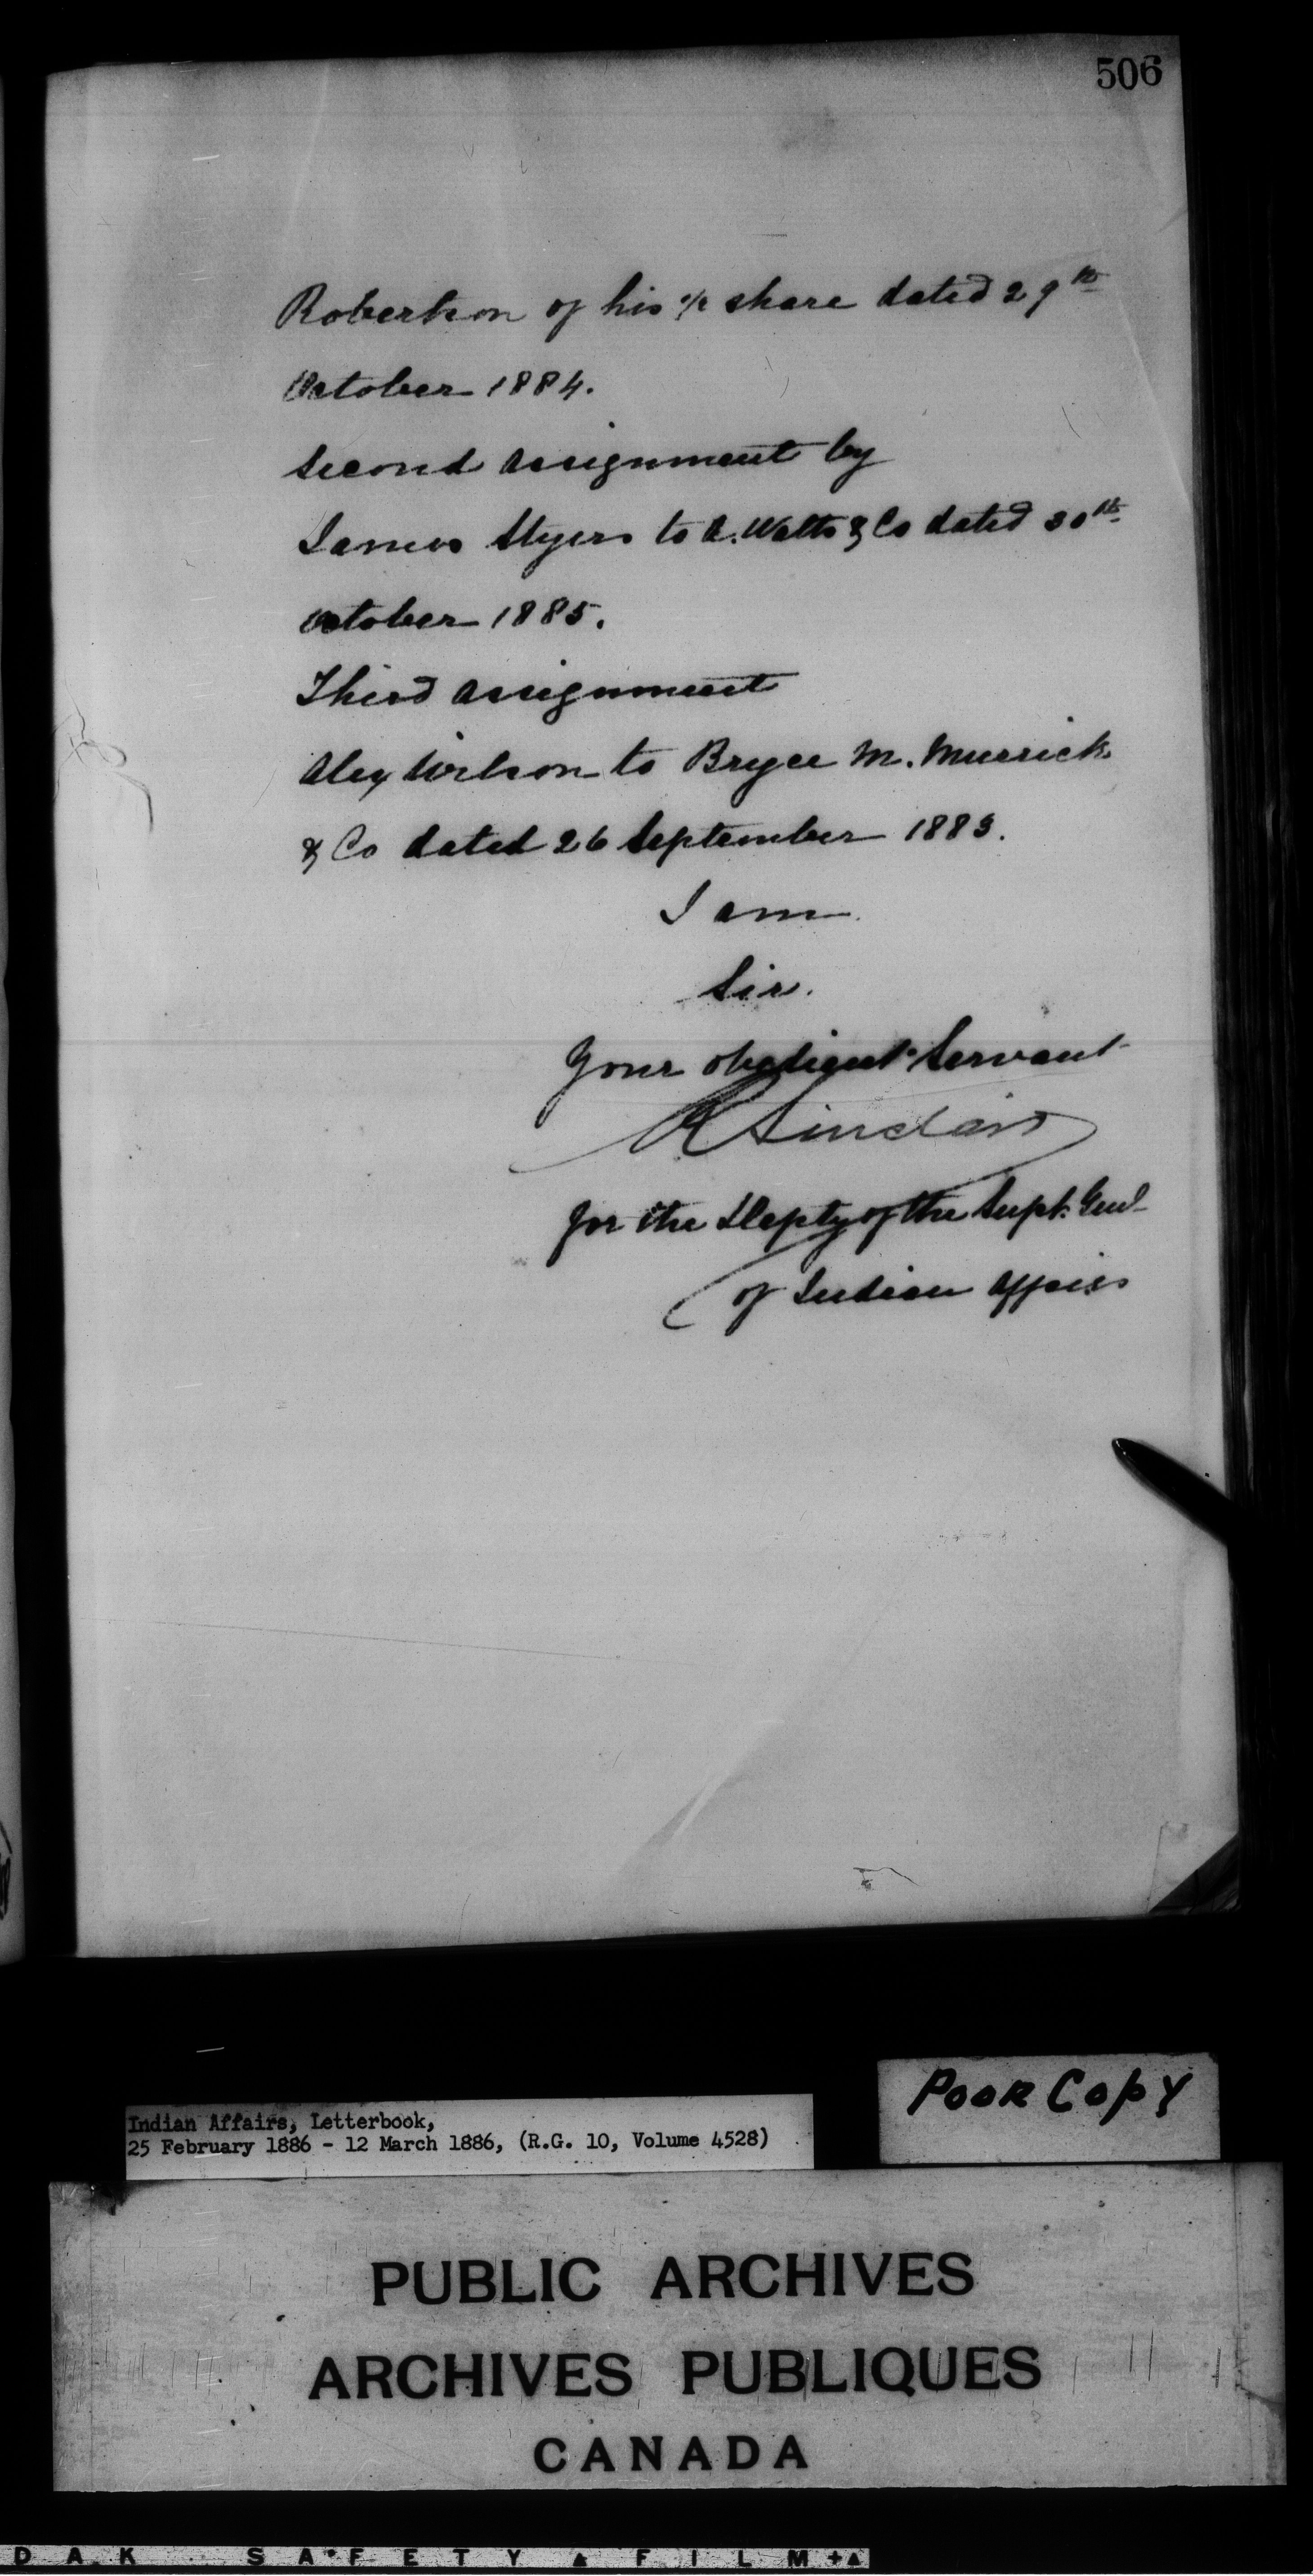 506
Robertson of his ½ share dated 29th
October 1884.
Second assignment by
James Myers to A. Watts & Co dated 30th
October 1885.
Third assignment
Alex Wilson to Bryce M. Murrick
& Co dated 26 September 1883.
I am
Sir.
Your obedient Servant
R Sinclair
for the Depty of the Supt. Genl
of Indian Affairs
Poor Copy
Indian Affairs, Letterbook,
25 February 1886 - 12 March 1886, (R.G. 10, Volume 4528)
PUBLIC ARCHIVES
ARCHIVES PUBLIQUES
CANADA
DAK SAFETY FILM